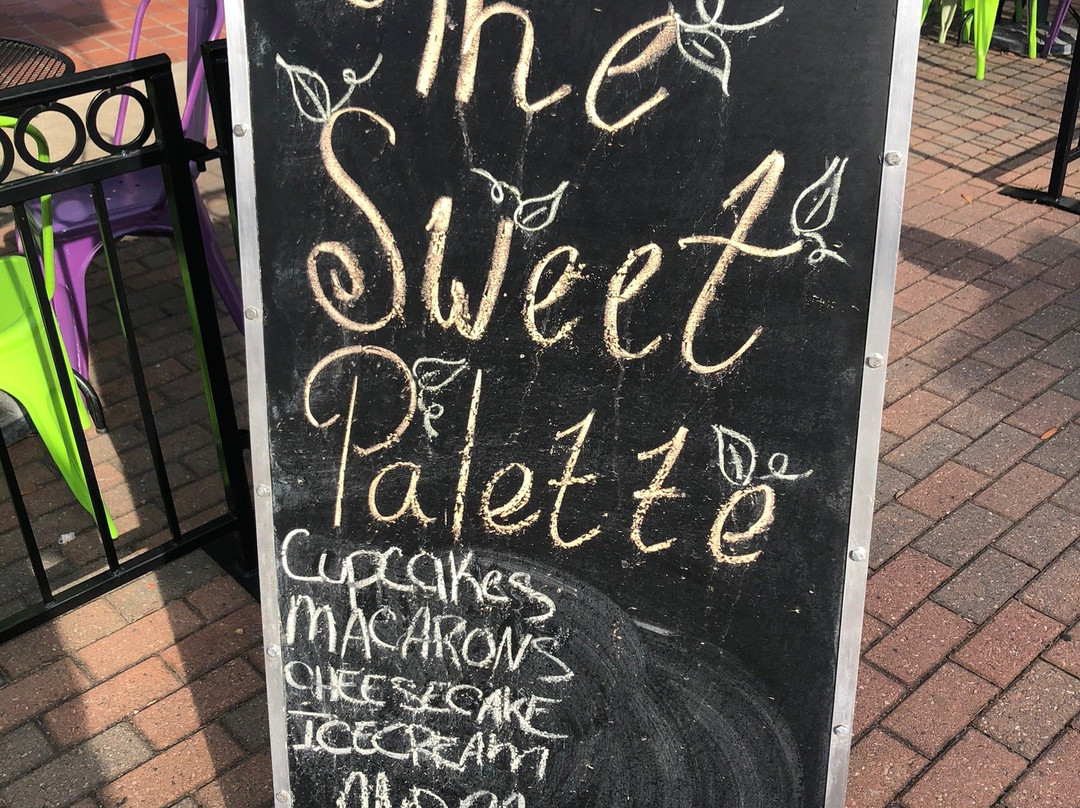 The
Sweet
Palette
Cupcakes
MACARONS
CHEESECAKE
ICECREAM